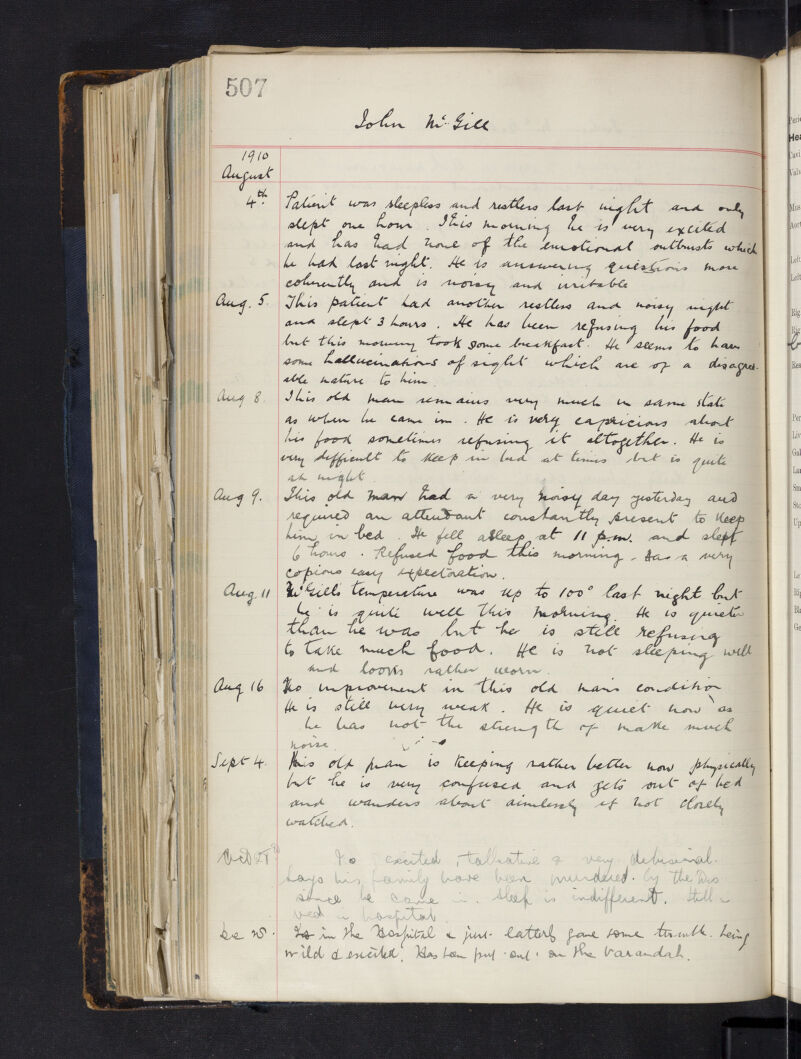 507
John McGill
1910
August
4th. Patient was sleepless and restless last night and only
slept one hour. This morning he is very excited
and has had none of the emotional outbursts which
he had last night. He is answering questions more
coherently and is noisy and irritable
Aug. 5. This patient had another restless and noisy night
and slept 3 hours. He has been refusing his food
but this morning took some breakfast. He seems to have
some hallucinations of sight which are of a disagree-
able nature to him.
Aug 8. This old man remains very much in same state
as when he came in. He is very capricious about
his food sometimes refusing it altogether. He is
very difficult to keep in bed at times but is quite
at night.
Aug 9. This old man had a very noisy day yesterday and
required an attendant constantly present to keep
him in bed. He fell asleep at 11 p.m. and slept
6 hours. Refused food this morning. Has a very
copious easy expectoration.
Aug. 11 McGill's temperature was up to 100° last night but
he is quite well this morning. He is quieter
than he was but he is still refusing
to take much food. He is not sleeping well
and looks rather worn.
Aug 16 No improvement in this old man's condition
He is still very weak. He is quiet now as
he has not the strength of make much
noise.
Sept 4. This old man is keeping rather better now physically
but he is very confused and gets out of bed
and wanders about aimlessly if not closely
watched.
Oct Is excited, talkative & very delusional.
Says his family have been murdered by the
since he came in. Sleep is indifferent. Still in
bed in hospital.
De 25. Is in the Hospital & just latterly gave some trouble being
wild & excited. Has been put out on the Varandah.